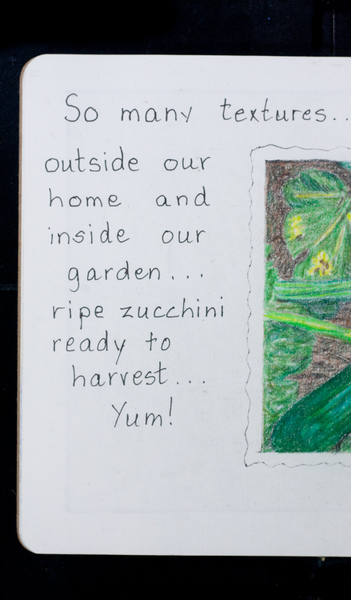 So many textures..
outside our
home and
inside our
garden...
ripe zucchini
ready to
harvest...
Yum!